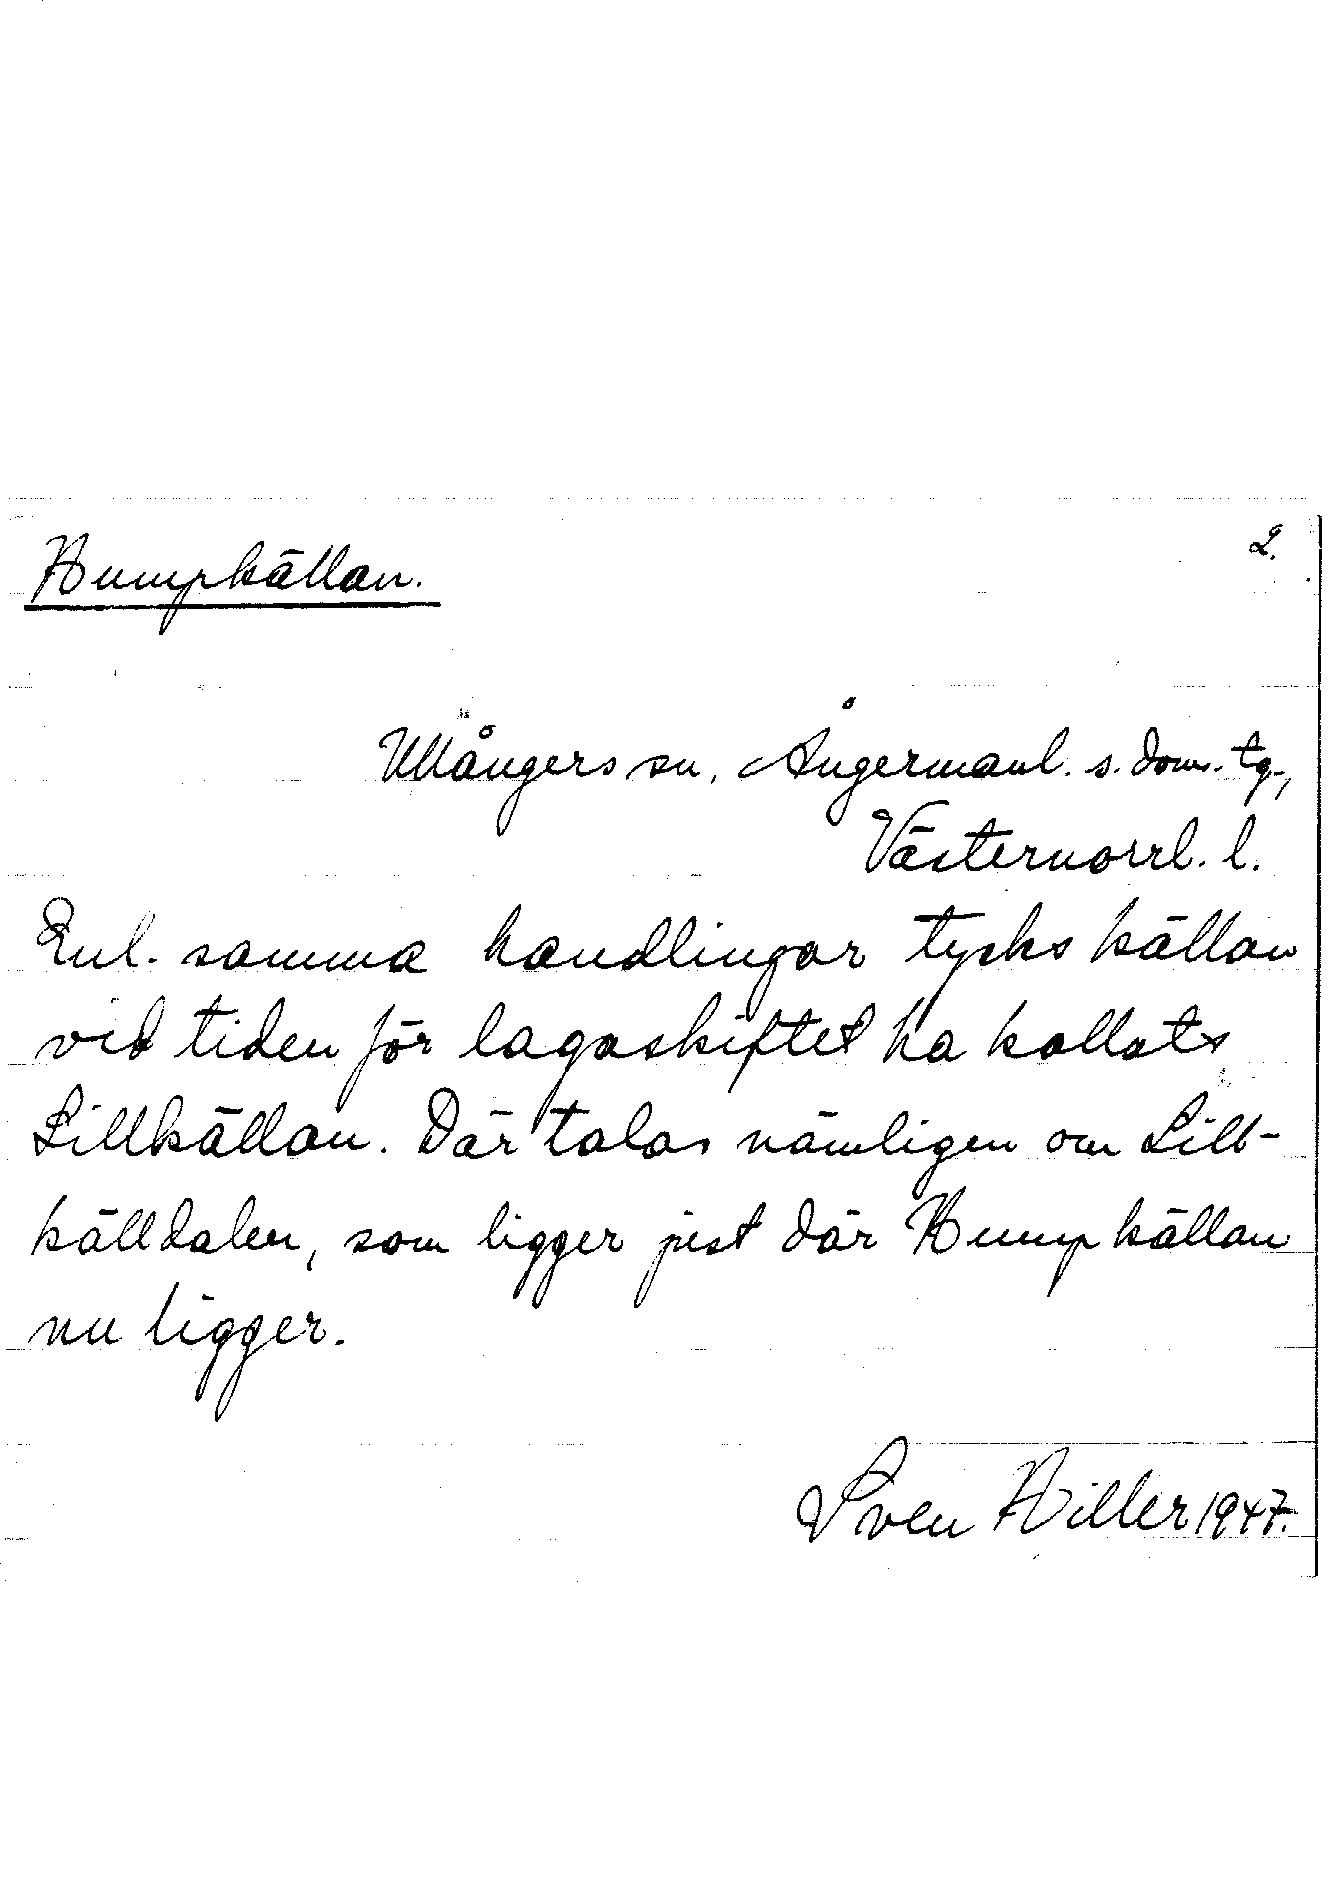 Humpkällan.
2.
Ullångers sn, Ångermanl. s. doms. tg.,
Västernorrl. l.
Enl. samma handlingar tycks källan
vid tiden för lagaskiftet ha kallats
Lillkällan. Där talas nämligen om Lill-
källdalen, som ligger just där Humpkällan
nu ligger.
Sven Hiller 1947.